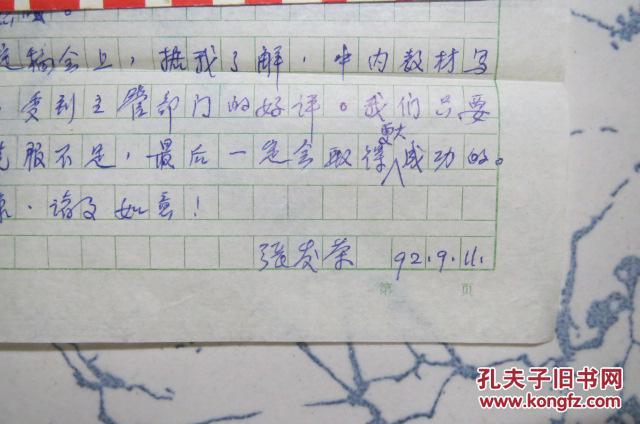 定稿会上，据我了解，中内教材写
，受到主管部门的好评。我们只要
克服不足，最后一定会取得更大成功的。
，诸事如意！
张发荣 92.9.11.
第 页
孔夫子旧书网
www.kongfz.com